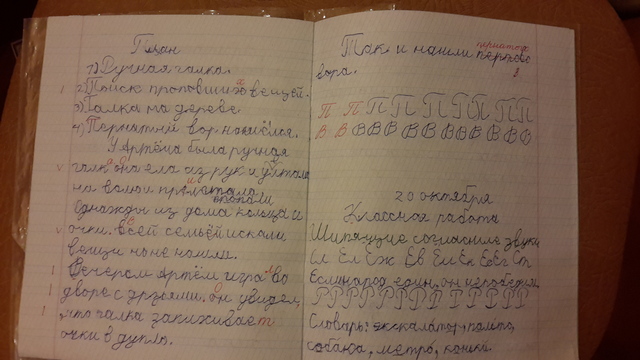 План
1) Ручная галка.
2) Поиск пропавших вещей.
3) Галка на дереве
4) Пернатый вор нашёлся.
У Артёма была ручная
галка она ела из рук и улетала
на волю и прилетала
пропали
Однажды из дома кольцо и
очки. всей семьёй искали
вещи но не нашли.
Вечером Артём играл во
дворе с друзьями. он увидел,
что галка заклживает
очки в дупль.
Так и нашли пернатого
вора.
П П П П П П П П П
В В В В В В В В В В В
20 октября
Классная работа
Шипящие согласные звуки
Ем Ел Еж Ев Ел Ек Ег Ет
Если народ един, он непобедим
Словарь: экскалатор, пальто,
собака, метро, коньки.